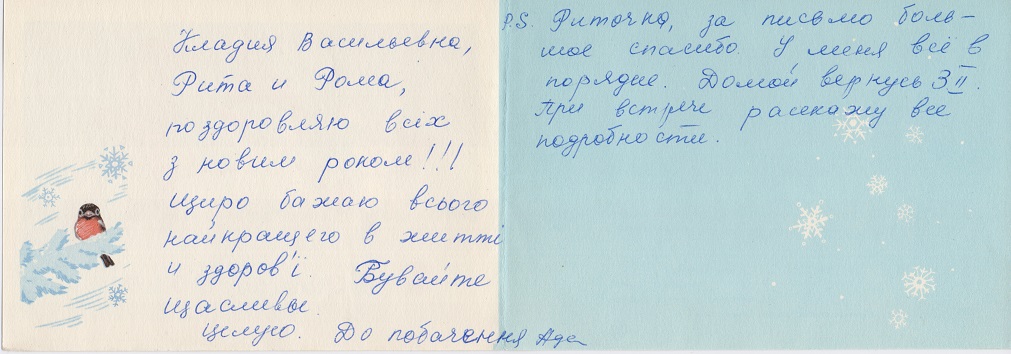 Кладия Васильевна,
Рита и Рома,
поздоровляю всіх
з новим роком!!!
Щиро бажаю всього
найкращего в житті
и здоров'ї. Бувайте
щасливы.
Целую. До побачення Ада
P.S. Риточка, за письмо боль-
шое спасибо. У меня всё в
порядке. Домой вернусь 3 II.
При встрече расскажу все
подробности.